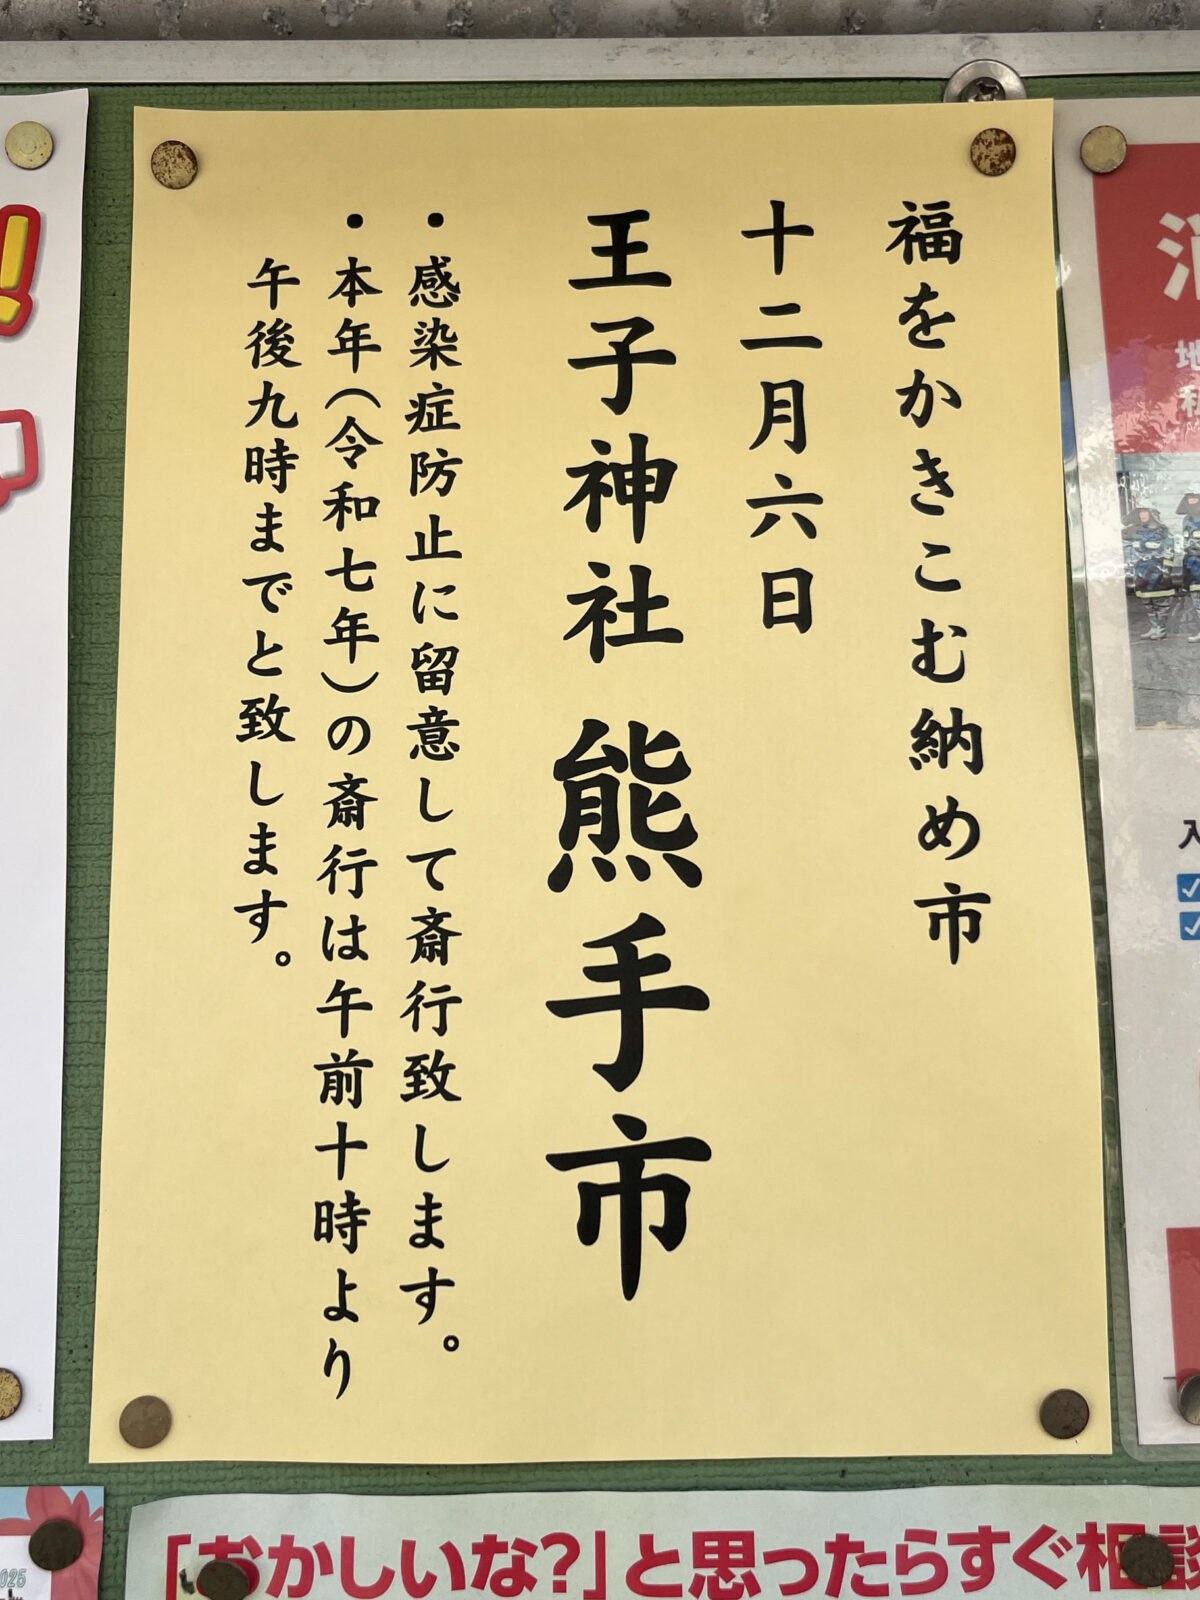 福をかきこむ納め市
十二月六日
王子神社 熊手市
・感染症防止に留意して斎行致します。
・本年（令和七年）の斎行は午前十時より
午後九時までと致します。
「おかしいな?」と思ったらすぐ相談
2025